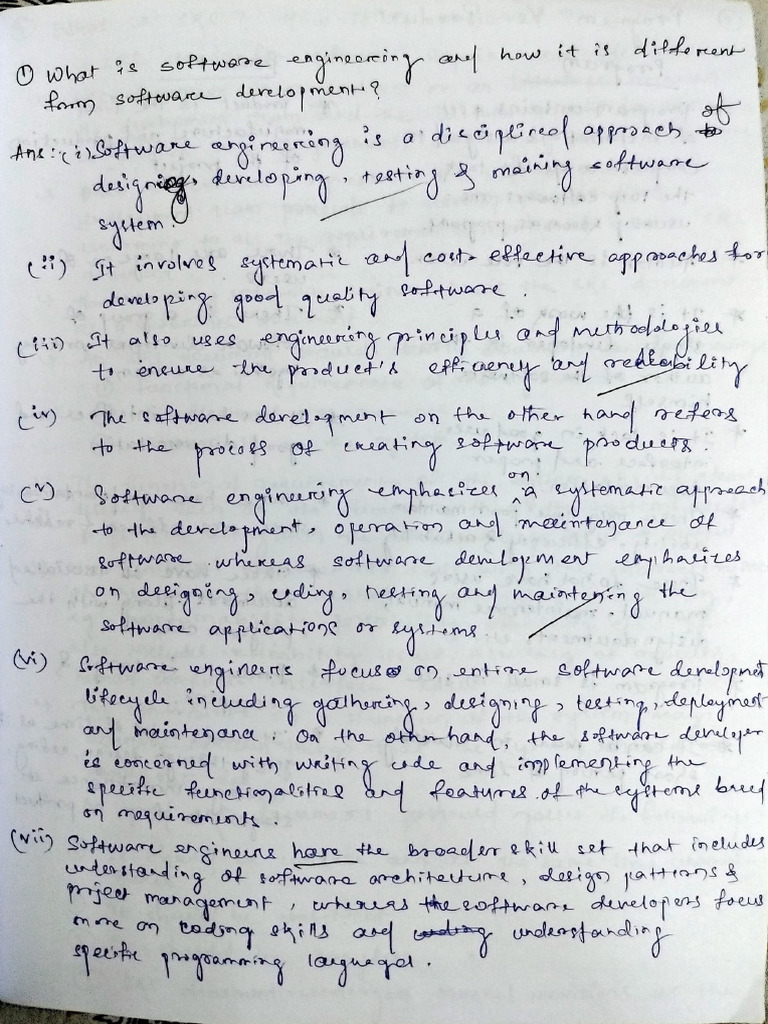 ① What is software engineering and how it is different
form software development?
Ans:- (i) Software engineering is a disciplined approach of
designing, developing, testing & maining software
system.
(ii) It involves systematic and cost-effective approaches for
developing good quality software.
(iii) It also uses engineering principles and methodologies
to ensure the product's efficiency and reliability
(iv) The software development on the other hand refers
to the process of creating software products.
(v) Software engineering emphasizes on a systematic approach
to the development, operation and maintenance of
software whereas software development emphasizes
on designing, coding, testing and maintening the
software applications or systems
(vi) Software engineers focus on entire software development
lifecycle including gathering, designing, testing, deployment
and maintenance. On the otherhand, the software developer
is concerned with writing code and implementing the
specific functionalities and features of the systems based
on requirements.
(vii) Software engineers have the broader skill set that includes
understanding of software architecture, design patterns &
project management, whereas the software developers focus
more on coding skills and understanding
specific programming languages.